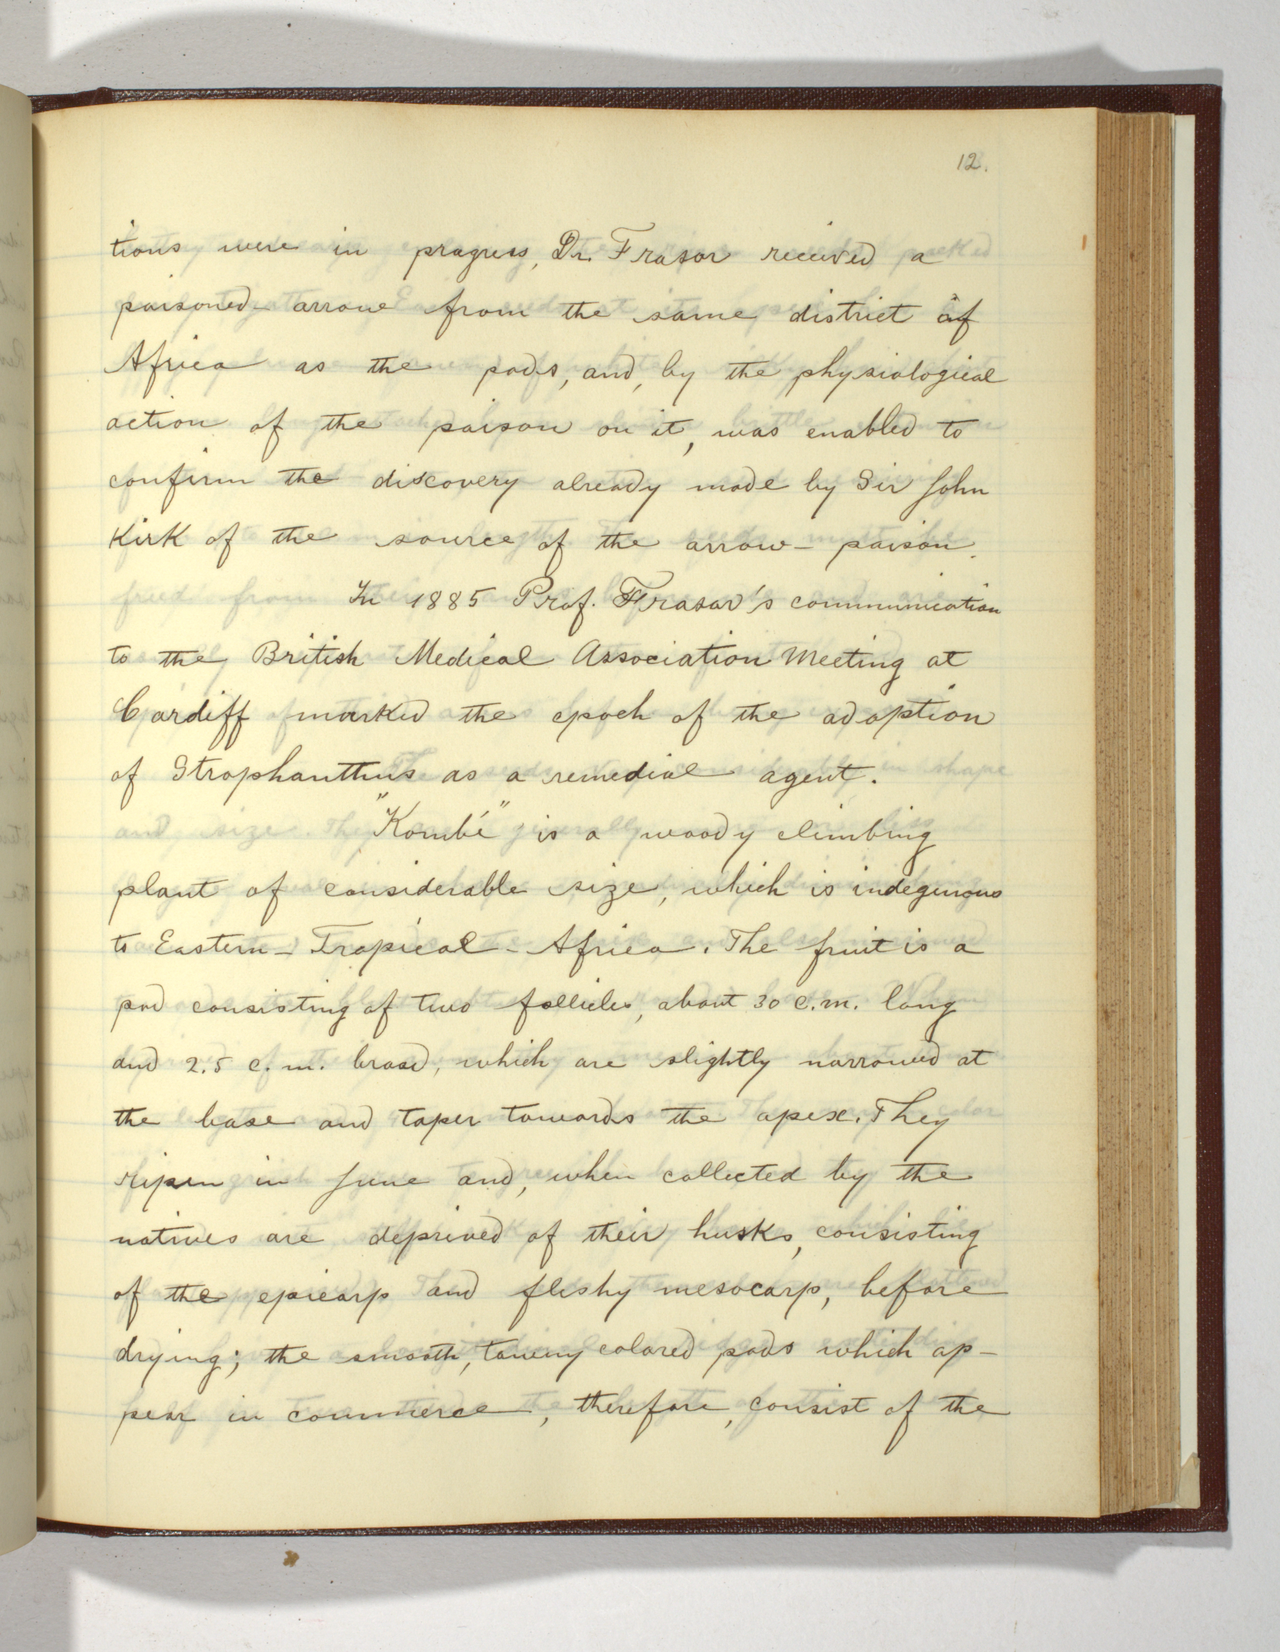 12.
tions were in progress, Dr. Frasor received a
poisoned arrow from the same district of
Africa as the pods, and, by the physiological
action of the poison on it, was enabled to
confirm the discovery already made by Sir John
Kirk of the source of the arrow-poison.
In 1885 Prof. Frasor's communication
to the British Medical Association Meeting at
Cardiff marked the epoch of the adoption
of Strophanthus as a remedial agent.
"Kombé" is a woody climbing
plant of considerable size, which is indeginous
to Eastern-Tropical-Africa. The fruit is a
pod consisting of two follicles, about 30 c.m. long
and 2.5 c.m. broad, which are slightly narrowed at
the base and taper towards the apex. They
ripen in June and, when collected by the
natives are deprived of their husks, consisting
of the epicarp and fleshy mesocarp, before
drying; the smooth, tawny colored pods which ap-
pear in commerce, therefore, consist of the